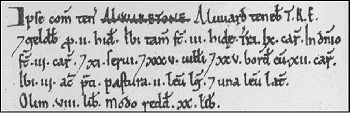 Ipse com ten ALWARETONE. Aluuard teneb T.R.E.
7 geldb p. ii. hid. Ibi tam st. iii. hidę. Tra. lx. car. In dnio
st. iii. car. 7 xi. serui. 7 xxxv. uilli 7 xxv. bord cu. xii. car.
Ibi. iii. ac pti. pastura. ii. leu lg 7 una leu lat.
Olim. viii. lib. Modo redd. xx. lib.